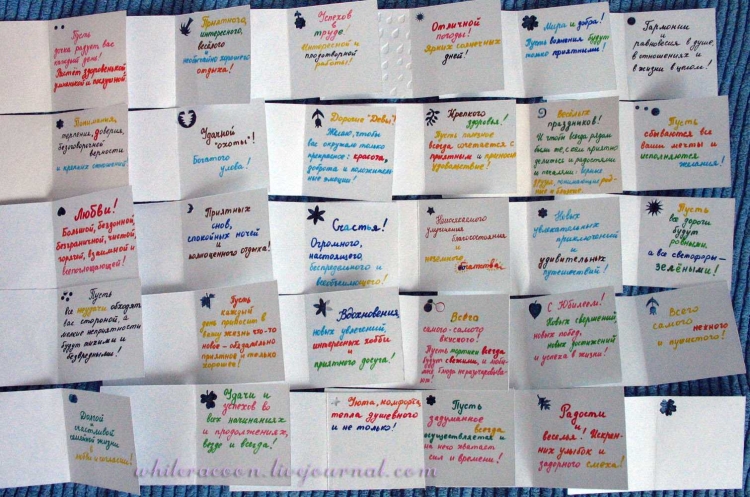 Пусть
дочка радует вас
каждый день!
Растёт здоровенькой,
умненькой и послушной.
Приятного,
интересного,
весёлого
и
необычайно хорошего
отдыха!
Успехов
в
труде.
Интересной и
плодотворной
работы!
Отличной
погоды!
Ярких солнечных
дней!
Мира и добра!
Пусть волнения будут
только приятными!
Гармонии
и
равновесия в душе,
в отношениях и
в жизни в целом!
Понимания,
терпения, доверия,
безоговорочной
верности
и крепких отношений!
Удачной
"охоты"!
Богатого
улова!
Дорогие "Девы"!
Желаю, чтобы
вас окружало только
прекрасное: красота,
доброта и положитель-
ные эмоции!
Крепкого
здоровья!
Пусть полезное
всегда сочетается с
приятным и приносит
удовольствие!
Весёлых
праздников!
И чтобы всегда рядом
были те, с кем приятно
делиться и радостями
и печалями: верные
друзья, понимающие род-
ные и близкие.
Пусть
сбываются все
ваши мечты и
исполняются
желания!
Любви!
Большой, бездонной,
безграничной, чистой,
горячей, взаимной и
всепоглощающей!
Приятных
снов,
спокойных ночей
и
полноценного отдыха!
Счастья!
Огромного,
настоящего,
беспредельного и
всеобъемлющего!
Колоссального
улучшения
благосостояния
и
огромного
богатства!
Новых
увлекательных
приключений
и
удивительных
путешествий!
Пусть
все дороги
будут
ровными,
а все светофоры-
зелёными!
Пусть
все неудачи обходят
вас стороной, а
мелкие неприятности
будут тихими и
безвредными!
Пусть
каждый
день привносит в
вашу жизнь что-то
новое - обязательно
приятное и только
хорошее!
Вдохновения,
новых увлечений,
интересных хобби
и
приятного досуга!
Всего
самого-самого
вкусного!
Пусть тортики всегда
будут свежими, а
С Юбилеем!
Новых свершений,
новых побед,
новых достижений
и успеха в жизни!
Всего
самого
нежного
и
пушистого!
Долгой
и
счастливой
семейной жизни
в
любви и согласии!
Удачи и
успехов во
всех начинаниях
и продолжениях,
везде и всегда!
Уюта, комфорта,
тепла душевного
и не только!
Пусть
задуманное
всегда
осуществляется и
на него хватает
сил и времени!
Радости
и
веселья! Искрен-
них улыбок и
задорного смеха!
whiteracoon.livejournal.com